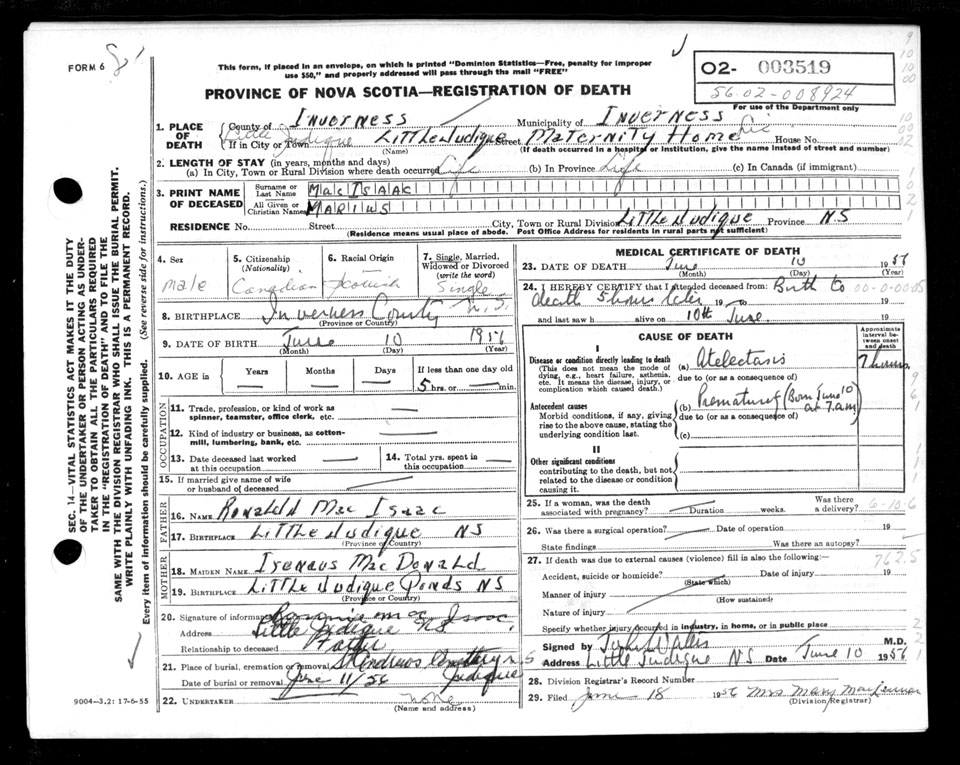 FORM 6
This form, if placed in an envelope, on which is printed "Dominion Statistics—Free, penalty for improper
use $50," and properly addressed will pass through the mail "FREE"
PROVINCE OF NOVA SCOTIA—REGISTRATION OF DEATH
02- 003519
56.02-008924
For use of the Department only
1. PLACE OF DEATH
County of Inverness Municipality of Inverness
If in City or Town Little Judique (Name) Street Maternity Home House No.
(If death occurred in a hospital or institution, give the name instead of street and number)
2. LENGTH OF STAY (in years, months and days)
(a) In City, Town or Rural Division where death occurred Life (b) In Province Life (c) In Canada (if immigrant)
3. PRINT NAME OF DECEASED
Surname or Last Name MacIsAAK
All Given or Christian Names MARIUS
RESIDENCE No. Street City, Town or Rural Division Little Judique Province NS
(Residence means usual place of abode. Post Office Address for residents in rural parts not sufficient)
4. Sex
male
5. Citizenship (Nationality)
Canadian
6. Racial Origin
Scottish
7. Single, Married, Widowed or Divorced (write the word)
Single
8. BIRTHPLACE Inverness County N.S.
(Province or Country)
9. DATE OF BIRTH June 10 1956
(Month) (Day) (Year)
10. AGE in Years Months Days If less than one day old
5 hrs. or min.
OCCUPATION
11. Trade, profession, or kind of work as spinner, teamster, office clerk, etc.
12. Kind of industry or business, as cotton-mill, lumbering, bank, etc.
13. Date deceased last worked at this occupation
14. Total yrs. spent in this occupation
15. If married give name of wife or husband of deceased
FATHER
16. NAME Ronald Mac Isaac
17. BIRTHPLACE Little Judique NS
(Province or Country)
MOTHER
18. MAIDEN NAME Irenaus MacDonald
19. BIRTHPLACE Little Judique Ponds NS
(Province or Country)
20. Signature of informant Mac Isaac
Address Little Judique NS
Relationship to deceased Father
21. Place of burial, cremation or removal St Andrews Cemetery Judique NS
Date of burial or removal June 11/56
22. UNDERTAKER none
(Name and address)
MEDICAL CERTIFICATE OF DEATH
23. DATE OF DEATH June 10 1956
(Month) (Day) (Year)
24. I HEREBY CERTIFY that I attended deceased from: Birth to
death 5 hours later 19 To 19
and last saw h alive on 10th June 19
00-0-0005
CAUSE OF DEATH
Approximate interval between onset and death
I
Disease or condition directly leading to death (a) Atelectasis 7 hours
(This does not mean the mode of dying, e.g., heart failure, asthenia, etc. It means the disease, injury, or complication which caused death.)
due to (or as a consequence of)
Antecedent causes (b) Premature (Born June 10 at 7.am)
Morbid conditions, if any, giving rise to the above cause, stating the underlying condition last.
due to (or as a consequence of)
(c)
II
Other significant conditions
contributing to the death, but not related to the disease or condition causing it.
25. If a woman, was the death associated with pregnancy? Duration weeks. Was there a delivery?
6-10-6
26. Was there a surgical operation? Date of operation 19
State findings Was there an autopsy?
27. If death was due to external causes (violence) fill in also the following:—
762.5
Accident, suicide or homicide? (State which) Date of injury 19
Manner of injury (How sustained)
Nature of injury
Specify whether injury occurred in industry, in home, or in public place
Signed by M.D.
Address Little Judique NS Date June 10 1956
28. Division Registrar's Record Number
29. Filed June 18 1956 Mrs Mary MacLennan
(Division Registrar)
SEC. 14—VITAL STATISTICS ACT MAKES IT THE DUTY
OF THE UNDERTAKER OR PERSON ACTING AS UNDER-
TAKER TO OBTAIN ALL THE PARTICULARS REQUIRED
IN THE "REGISTRATION OF DEATH" AND TO FILE THE
SAME WITH THE DIVISION REGISTRAR WHO SHALL ISSUE THE BURIAL PERMIT.
WRITE PLAINLY WITH UNFADING INK. THIS IS A PERMANENT RECORD.
Every item of information should be carefully supplied. (See reverse side for instructions.)
9004—3.2: 17-6-55